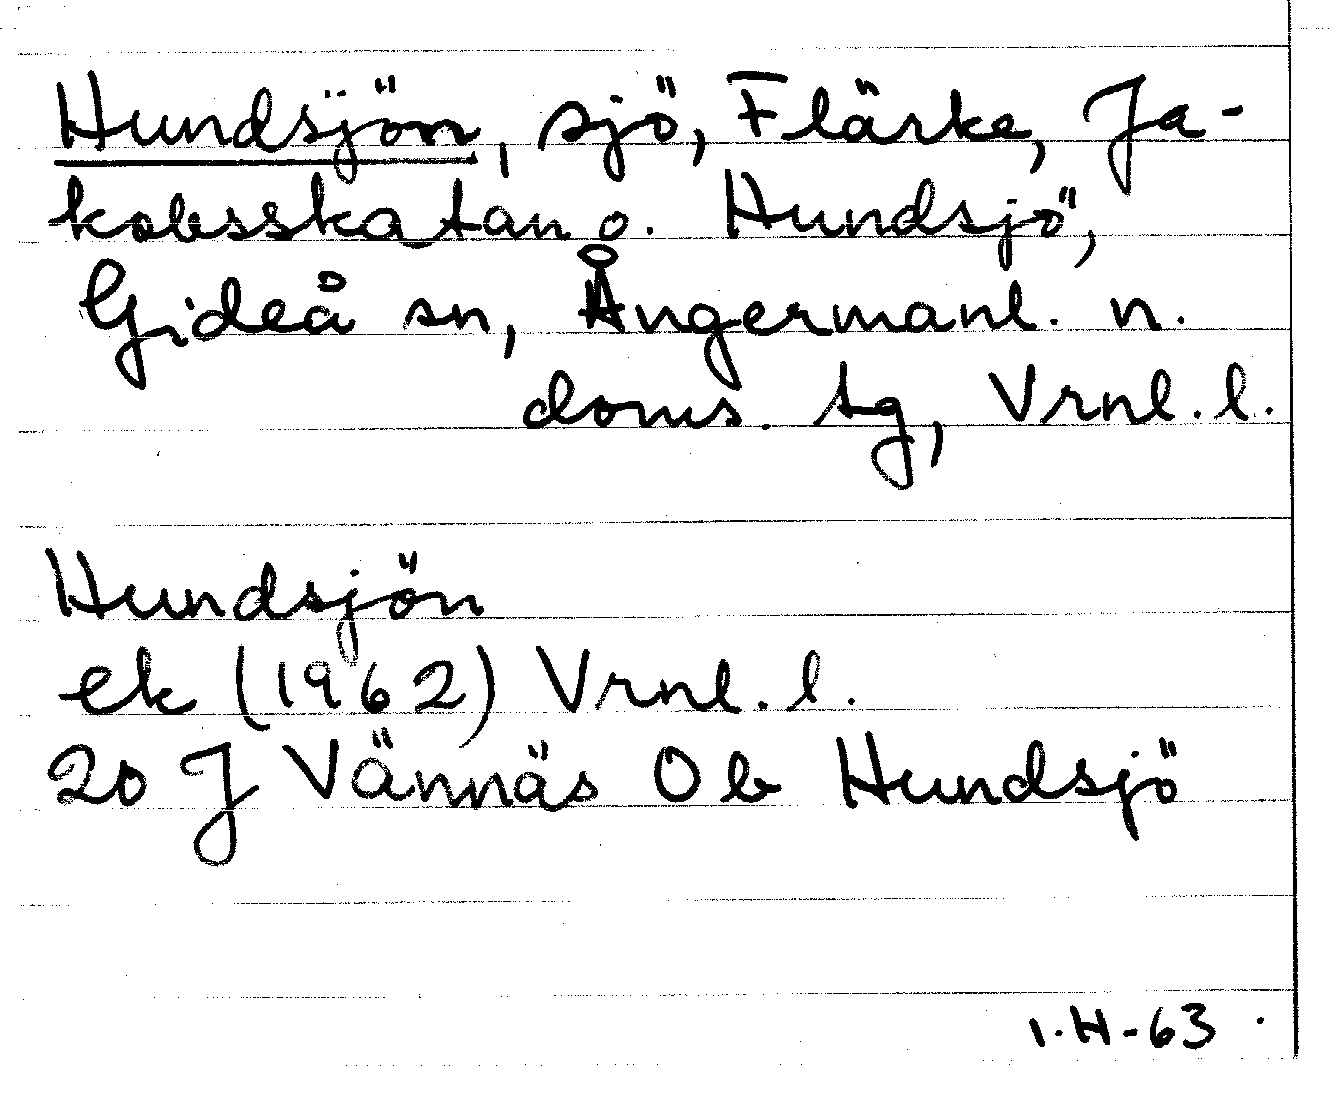 Hundsjön, sjö, Flärke, Ja-
kobsskatan o. Hundsjö,
Gideå sn, Ångermanl. n.
doms. tg, Vrnl. l.
Hundsjön
ek (1962) Vrnl. l.
20 J Vännäs Ob Hundsjö
1.H-63